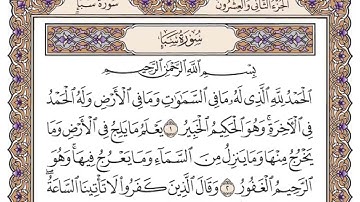 الجزء الثاني والعشرون سورة سبأ
سُورَةُ سَبَإٍ
بِسْمِ اللَّهِ الرَّحْمَٰنِ الرَّحِيمِ
الْحَمْدُ لِلَّهِ الَّذِي لَهُ مَا فِي السَّمَٰوَٰتِ وَمَا فِي الْأَرْضِ وَلَهُ الْحَمْدُ
فِي الْآخِرَةِ ۚ وَهُوَ الْحَكِيمُ الْخَبِيرُ ١ يَعْلَمُ مَا يَلِجُ فِي الْأَرْضِ وَمَا
يَخْرُجُ مِنْهَا وَمَا يَنزِلُ مِنَ السَّمَآءِ وَمَا يَعْرُجُ فِيهَا ۚ وَهُوَ
الرَّحِيمُ الْغَفُورُ ٢ وَقَالَ الَّذِينَ كَفَرُوا لَا تَأْتِينَا السَّاعَةُ ۖ